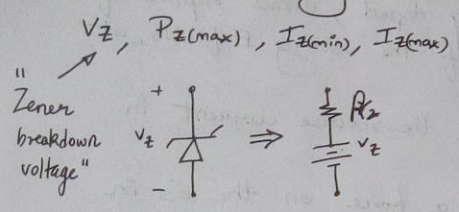 V_Z, P_Z(max), I_Z(min), I_Z(max)
"Zener
breakdown
voltage"
+
V_Z
−
⇒
V_Z